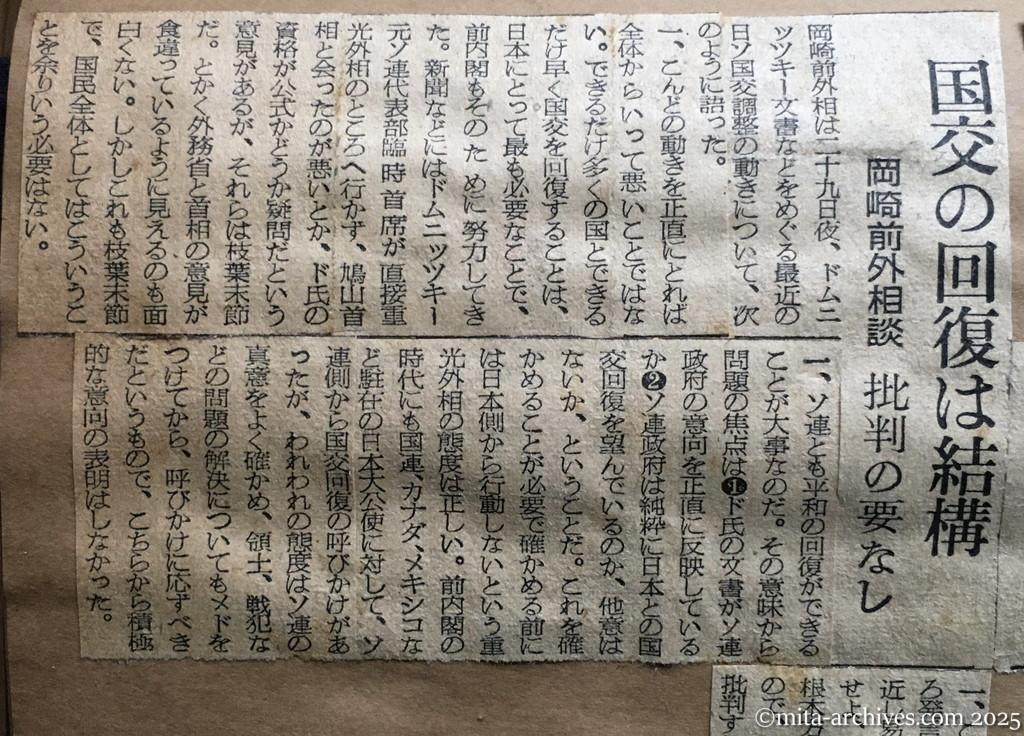 国交の回復は結構
岡崎前外相談 批判の要なし
岡崎前外相は二十九日夜、ドムニ
ツツキー文書などをめぐる最近の
日ソ国交調整の動きについて、次
のように語った。
一、こんどの動きを正直にとれば
全体からいって悪いことではな
い。できるだけ多くの国とできる
だけ早く国交を回復することは、
日本にとって最も必要なことで、
前内閣もそのために努力してき
た。新聞などにはドムニッツキー
元ソ連代表部臨時首席が直接重
光外相のところへ行かず、鳩山首
相と会ったのが悪いとか、ド氏の
資格が公式かどうか疑問だという
意見があるが、それらは枝葉末節
だ。とかく外務省と首相の意見が
食違っているように見えるのも面
白くない。しかしこれも枝葉末節
で、国民全体としてはこういうこ
とを余りいう必要はない。
一、ソ連とも平和の回復ができる
ことが大事なのだ。その意味から
問題の焦点は❶ド氏の文書がソ連
政府の意向を正直に反映している
か❷ソ連政府は純粋に日本との国
交回復を望んでいるのか、他意は
ないか、ということだ。これを確
かめることが必要で確かめる前に
は日本側から行動しないという重
光外相の態度は正しい。前内閣の
時代にも国連、カナダ、メキシコな
ど駐在の日本大公使に対して、ソ
連側から国交回復の呼びかけがあ
ったが、われわれの態度はソ連の
真意をよく確かめ、領土、戦犯な
どの問題の解決についてもメドを
つけてから、呼びかけに応ずべき
だというもので、こちらから積極
的な意向の表明はしなかった。
一、
ろ発言
近し
せよ、
根本
ので
批判す
©mita-archives.com 2025